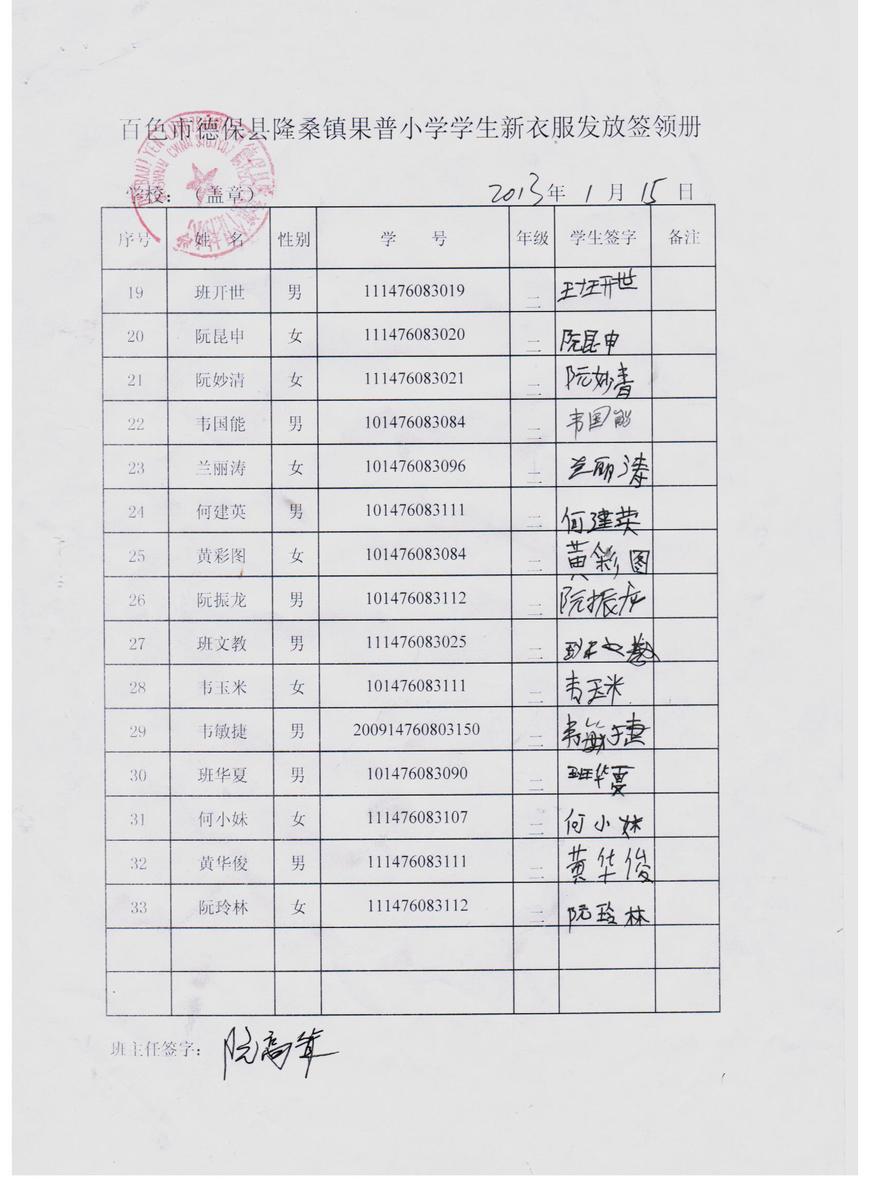 百色市德保县隆桑镇果普小学学生新衣服发放签领册
学校：（盖章） 2013年 1 月 15 日
序号 姓 名 性别 学 号 年级 学生签字 备注
19 班开世 男 111476083019 二 班开世
20 阮昆申 女 111476083020 二 阮昆申
21 阮妙清 女 111476083021 二 阮妙青
22 韦国能 男 101476083084 二 韦国能
23 兰丽涛 女 101476083096 二 兰丽涛
24 何建英 男 101476083111 二 何建英
25 黄彩图 女 101476083084 二 黄彩图
26 阮振龙 男 101476083112 二 阮振龙
27 班文教 男 111476083025 二 班文教
28 韦玉米 女 101476083111 二 韦玉米
29 韦敏捷 男 200914760803150 二 韦敏捷
30 班华夏 男 101476083090 二 班华夏
31 何小妹 女 111476083107 二 何小妹
32 黄华俊 男 111476083111 二 黄华俊
33 阮玲林 女 111476083112 二 阮玲林
班主任签字：